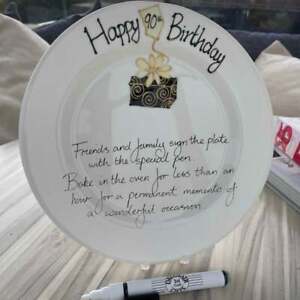 Happy 90th Birthday
Friends and family sign the plate
with the special pen.
Bake in the oven for less than an
hour for a permanent memento of
a wonderful occasion